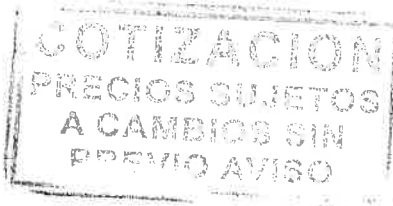 COTIZACION
PRECIOS SUJETOS
A CAMBIOS SIN
PREVIO AVISO